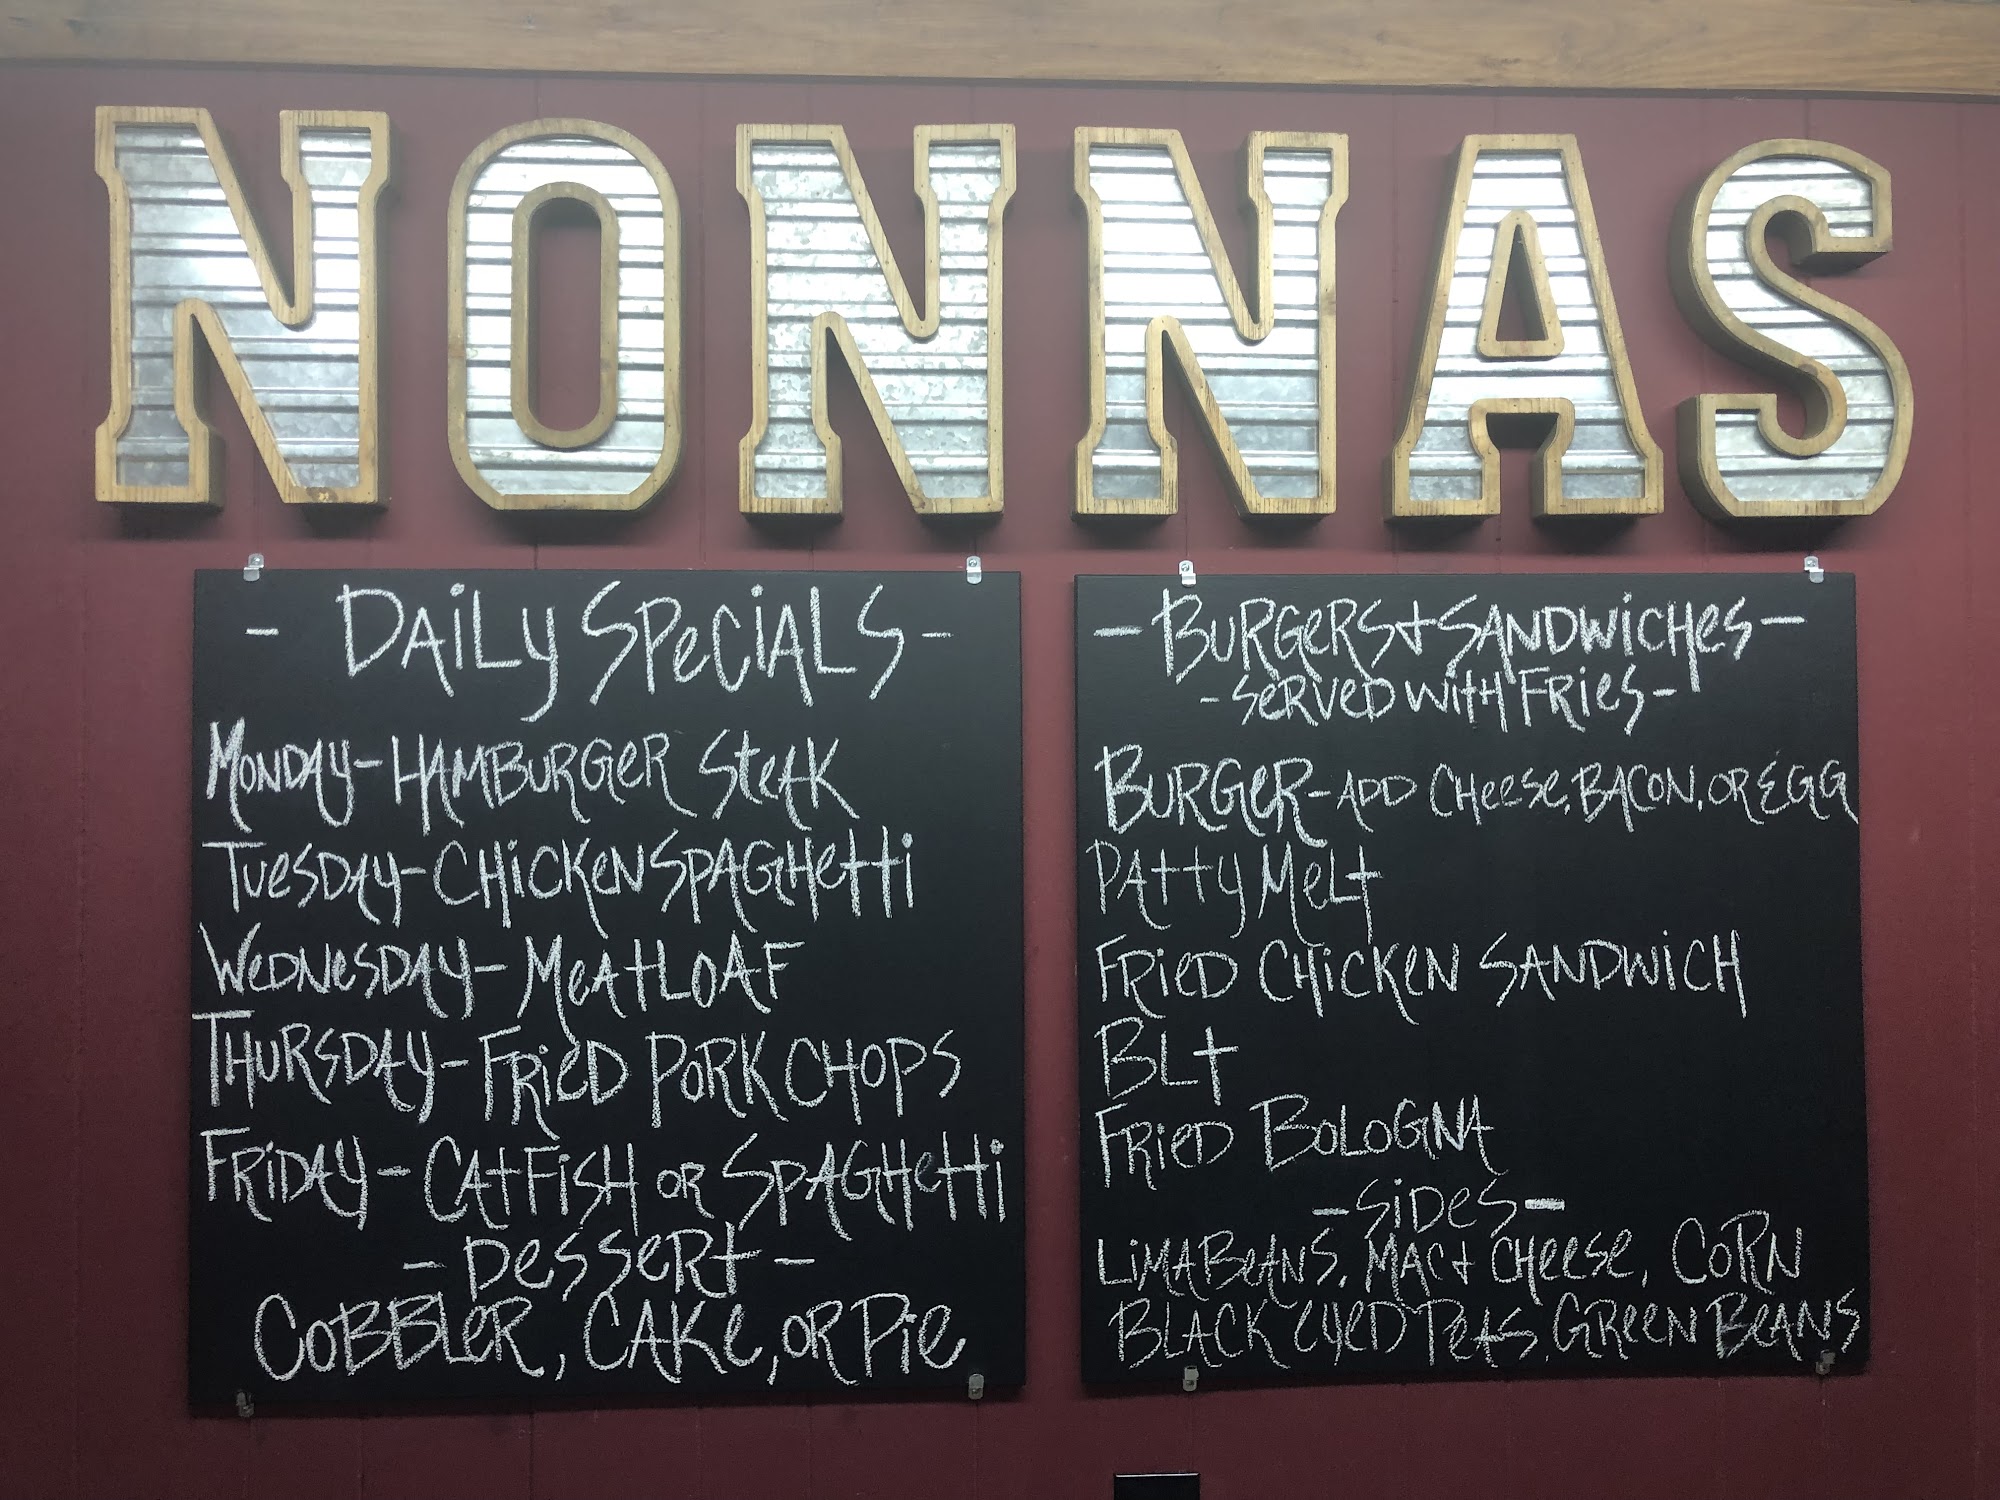 NONNAS
- DAiLy SPeCiALS -
MONDAy - HAMBURGeR SteAK
TUeSDAy - CHiCKeN SPAGHetti
WeDNeSDAy - MeAtLOAF
THURSDAy - FRieD PORK CHOPS
FRiDAy - CAtFiSH OR SPAGHetti
- DeSSeRt -
COBBLeR, CAKe, OR Pie
- BURGeRS + SANDWiCHeS -
- SeRVeD WitH FRieS -
BURGeR - ADD CHeeSe, BACON, OR EGG
PAtty MeLt
FRieD CHiCKeN SANDWiCH
BLt
FRieD BOLOGNA
- SiDeS -
LiMA BeANS, MAC + CHeeSe, CORN
BLACK eyeD PeAS, GReeN BeANS